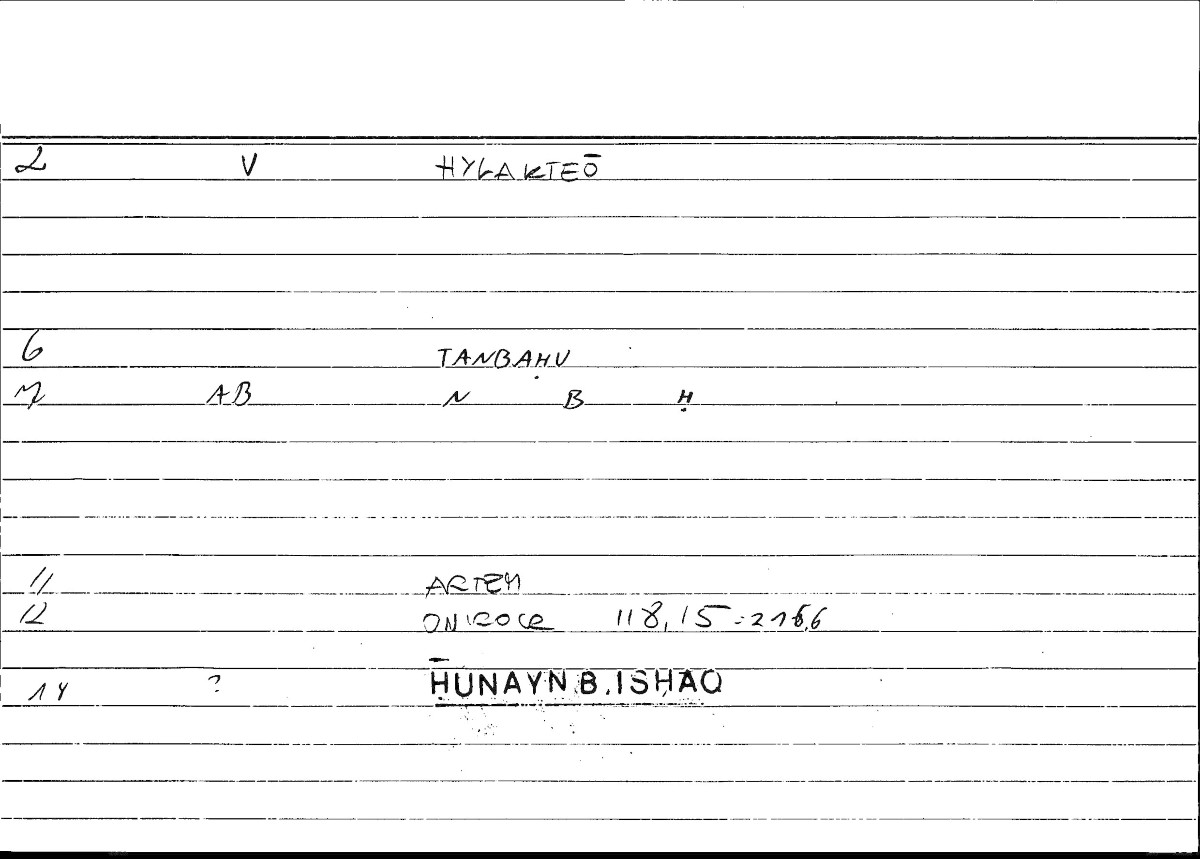 2 V HYLAKTEŌ
6 TANBAḤU
7 AB N B Ḥ
11 ARTEM
12 ONIROCR 118,15 = 216,6
14 ? ḤUNAYN B. ISḤAQ